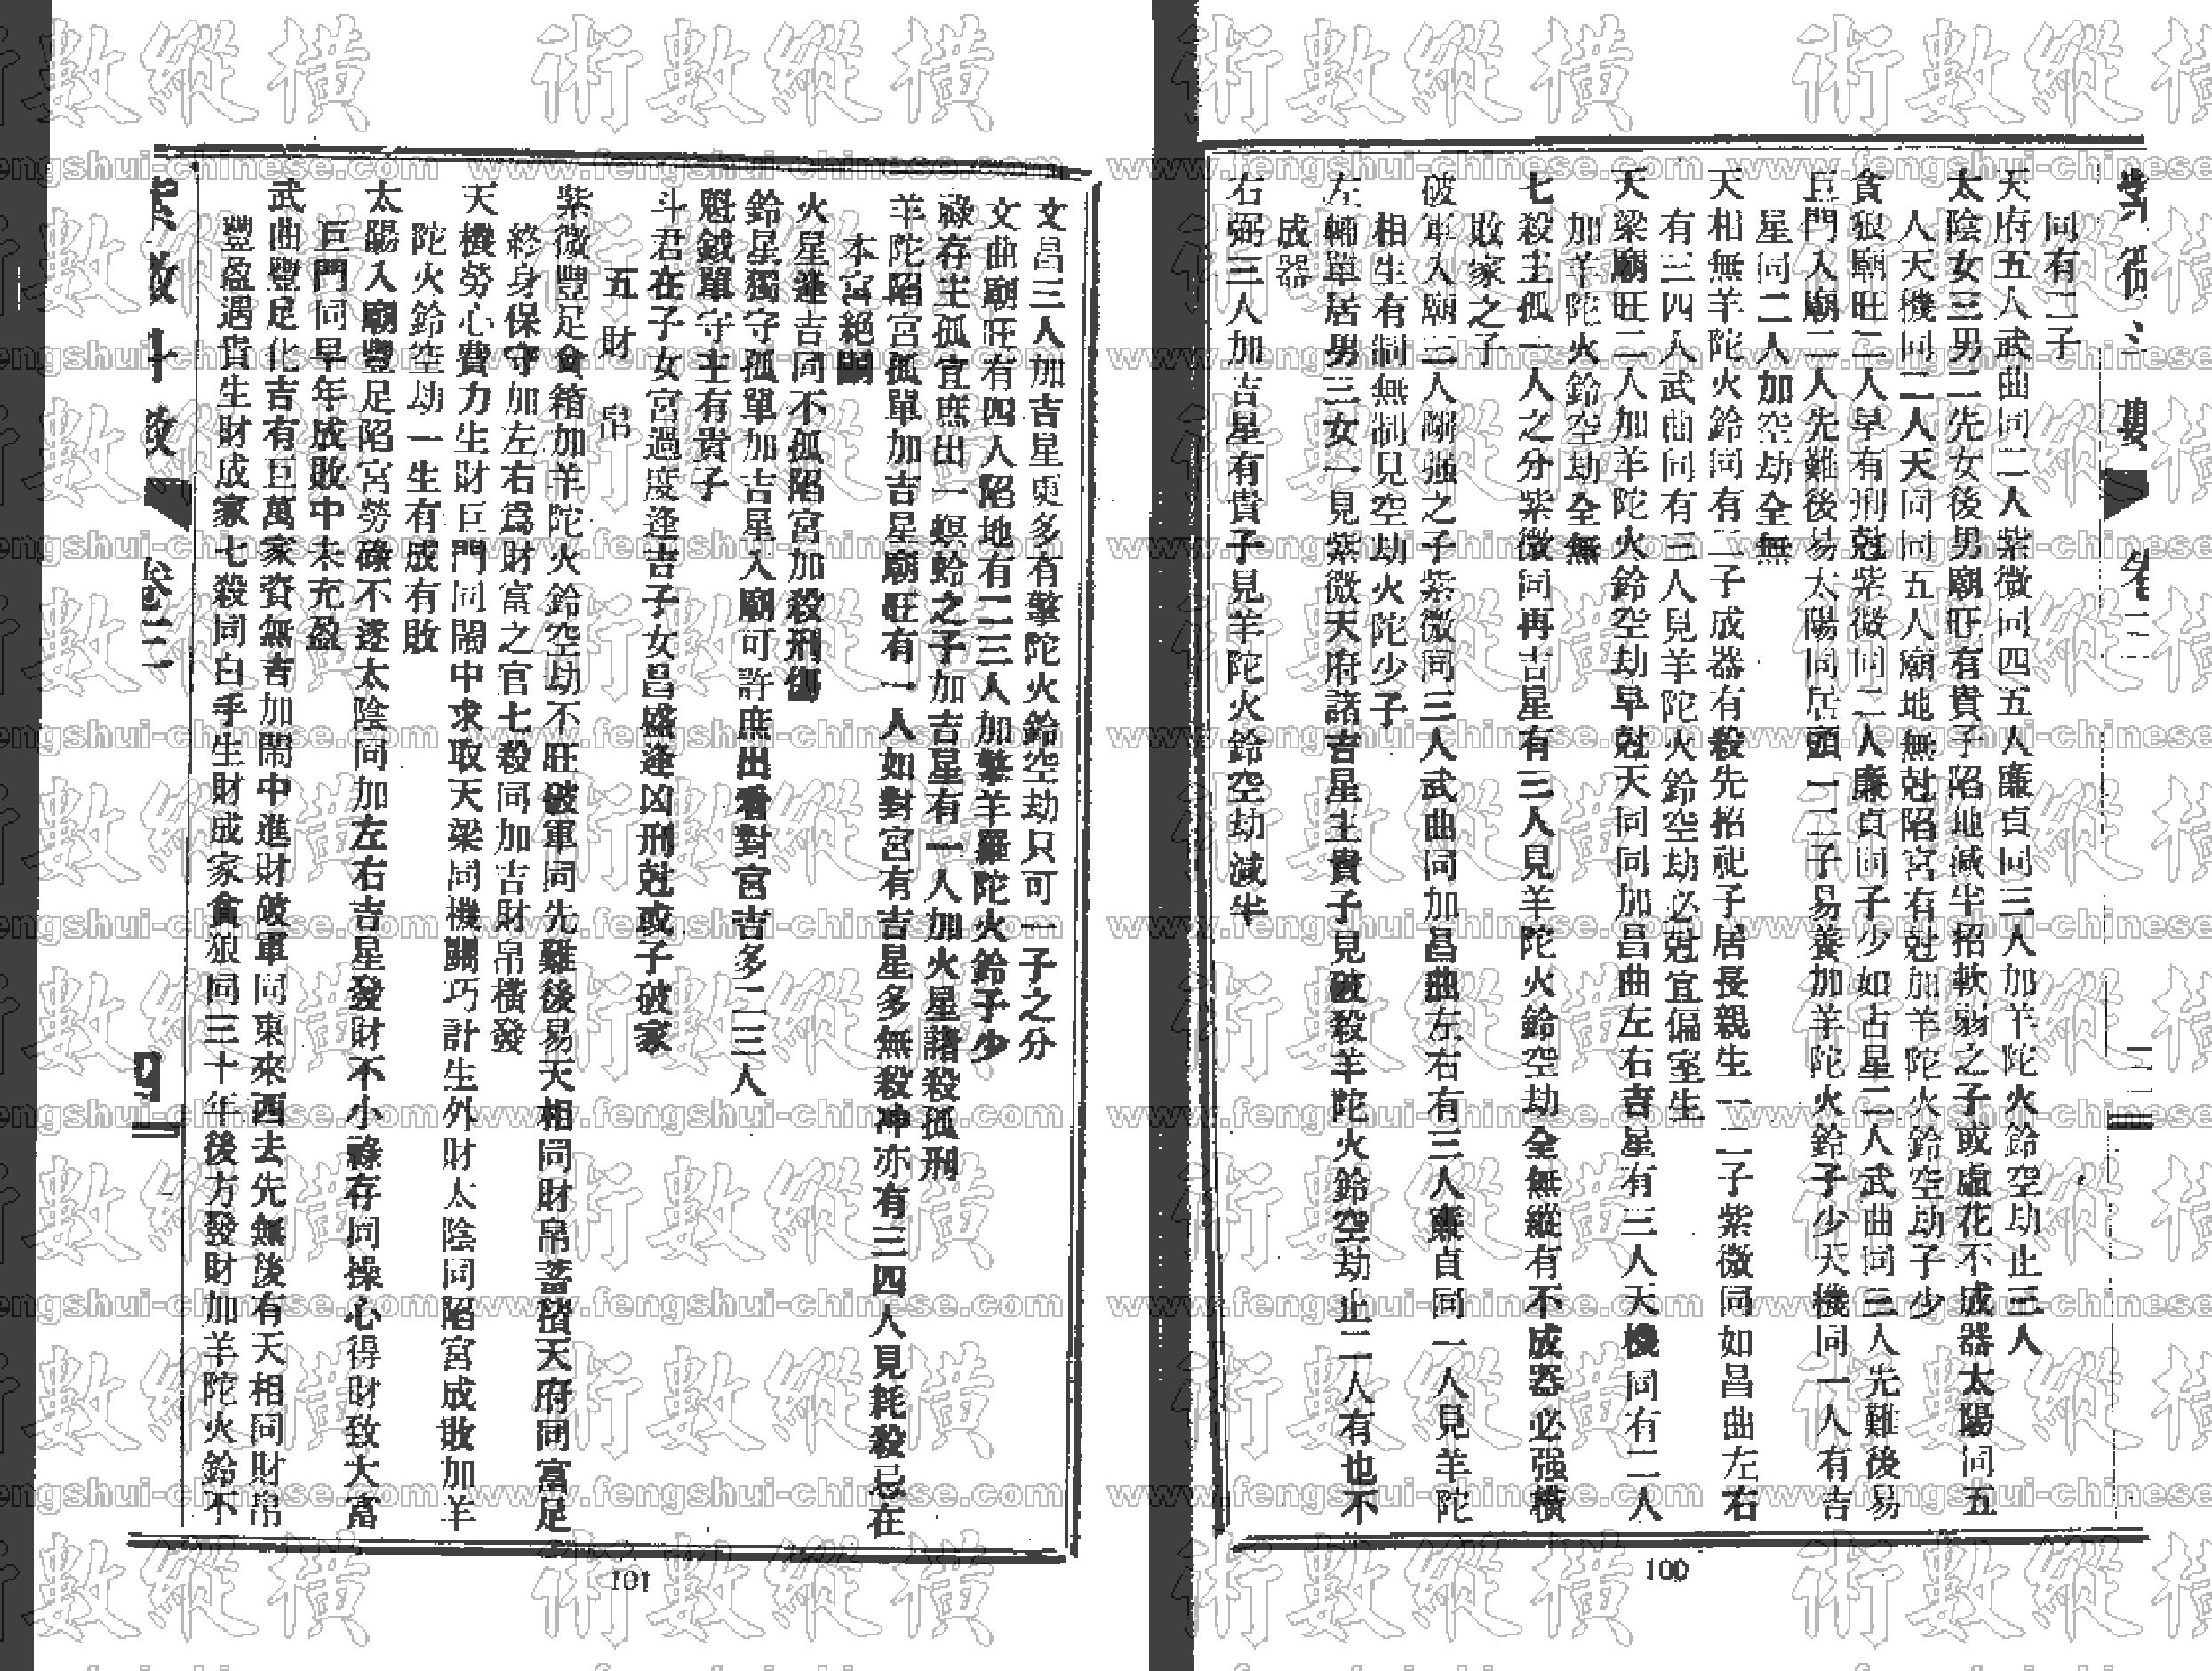 紫微斗數
卷三
同有二子
天府五人武曲同二人紫微同四五人廉貞同三人加羊陀火鈴空劫止三人
太陰女三男二先女後男廟旺有貴子陷地減半招軟弱之子或虛花不成器太陽同五
人天機同二人天同同五人廟地無尅陷宮有尅加羊陀火鈴空劫子少
貪狼廟旺二人早有刑尅紫微同二人廉貞同子少如吉星二人武曲同三人先難後易
巨門入廟二人先難後易太陽同居頭一二子易養加羊陀火鈴子少天機同一人有吉
星同二人加空劫全無
天相無羊陀火鈴同有二子成器有殺先招祀子居長親生一二子紫微同如昌曲左右
有三四人武曲同有三人見羊陀火鈴空劫必尅宜偏室生
天梁廟旺二人加羊陀火鈴空劫早尅天同同加昌曲左右吉星有三人天機同有二人
加羊陀火鈴空劫全無
七殺主孤一人之分紫微同再吉星有三人見羊陀火鈴空劫全無縱有不成器必强橫
敗家之子
破軍入廟三人剛强之子紫微同三人武曲同加昌曲左右有三人廉貞同一人見羊陀
相生有制無制見空劫火陀少子
左輔單居男三女一見紫微天府諸吉星主貴子見破殺羊陀火鈴空劫止二人有也不
成器
右弼三人加吉星有貴子見羊陀火鈴空劫減半
100
文昌三人加吉星更多有擎陀火鈴空劫只可一子之分
文曲廟旺有四人陷地有二三人加擎羊羅陀火鈴子少
祿存主孤宜庶出一螟蛉之子加吉星有一人加火星諸殺孤刑
羊陀陷宮孤單加吉星廟旺有一人如對宮有吉星多無殺冲亦有三四人見耗殺忌在
本宮絕嗣
火星逢吉同不孤陷宮加殺刑傷
鈴星獨守孤單加吉星入廟可許庶出看對宮吉多二三人
魁鉞單守主有貴子
斗君在子女宮過度逢吉子女昌盛逢凶刑尅或子破家
五財帛
紫微豐足倉箱加羊陀火鈴空劫不旺破軍同先難後易天相同財帛蓄積天府同富足
終身保守加左右爲財富之官七殺同加吉財帛橫發
天機勞心費力生財巨門同鬧中求取天梁同機關巧計生外財太陰同陷宮成敗加羊
陀火鈴空劫一生有成有敗
太陽入廟豐足陷宮勞碌不遂太陰同加左右吉星發財不小祿存同操心得財致大富
巨門同早年成敗中末充盈
武曲豐足化吉有巨萬家資無吉加鬧中進財破軍同東來西去先無後有天相同財帛
豐盈遇貴生財成家七殺同白手生財成家貪狼同三十年後方發財加羊陀火鈴不
101